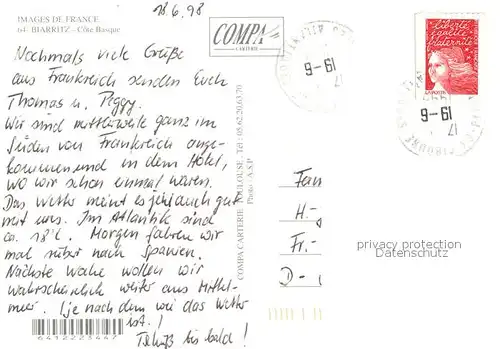 18.6.98
IMAGES DE FRANCE
64 - BIARRITZ - Côte Basque
COMPA
CARTERIE
Nochmals viele Grüße
aus Frankreich senden Euch
Thomas u. Peggy.
Wir sind mittlerweile ganz im
Süden von Frankreich ange-
kommen und in dem Hotel,
wo wir schon einmal waren.
Das Wetter meint es jetzt auch gut
mit uns. Im Atlantik sind
ca. 18°C. Morgen fahren wir
mal rüber nach Spanien.
Nächste Woche wollen wir
wahrscheinlich weiter ans Mittel-
meer. (je nach dem wie das Wetter
ist.)
Tschüß bis bald!
6412223447
COMPA CARTERIE - TOULOUSE - Tél : 05.62.20.63.70
Photo : A.S.P
liberté
égalité
fraternité
LA POSTE
17
19-6
17
19-6
Fam
H.-
Fr.-
D-
privacy protection
Datenschutz